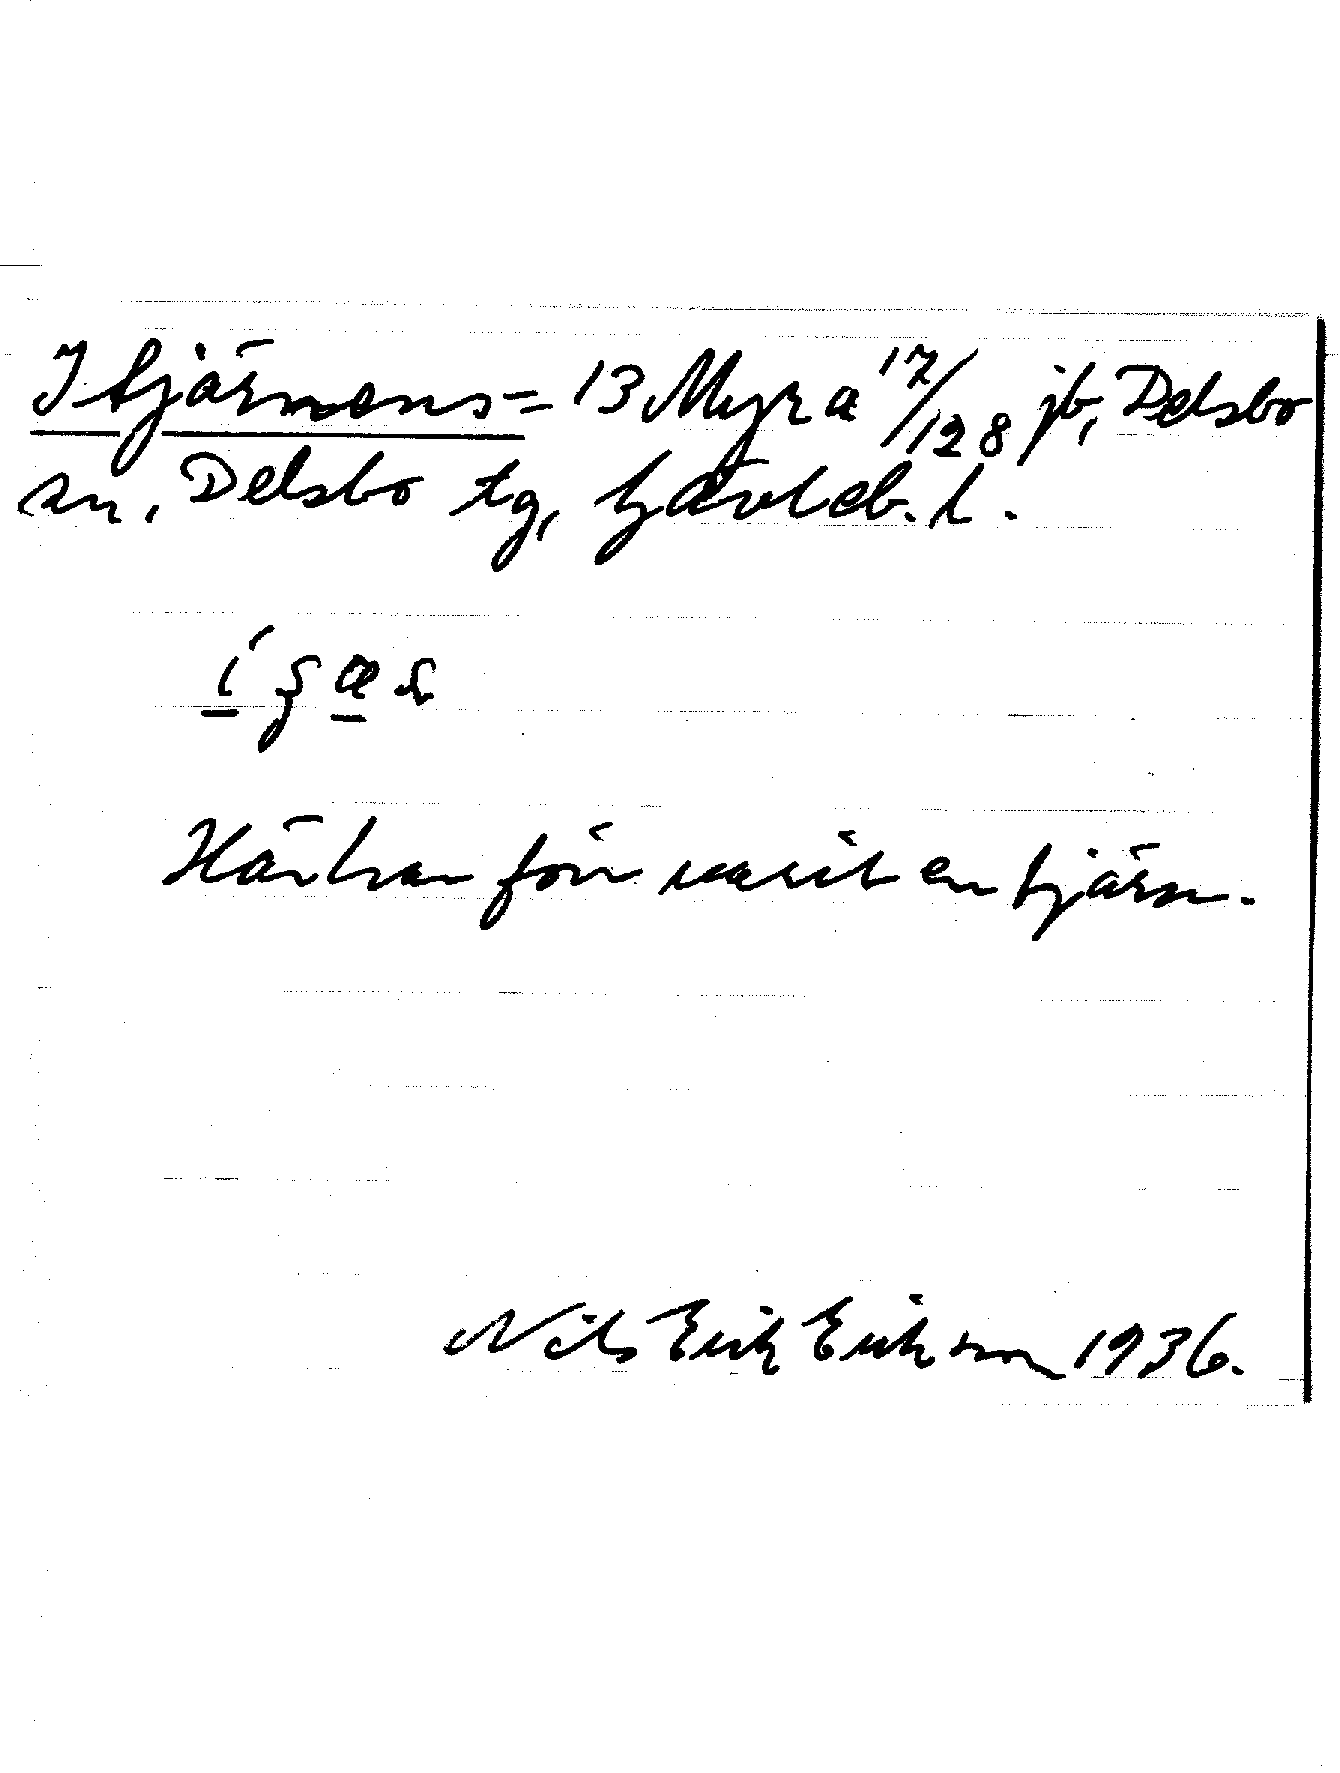 I tjärnens= 13 Myra 17/128 jb, Delsbo
sn, Delsbo tg, Gävleb. l.
Här har förr varit en tjärn.
Nils Erik Erikson 1936.